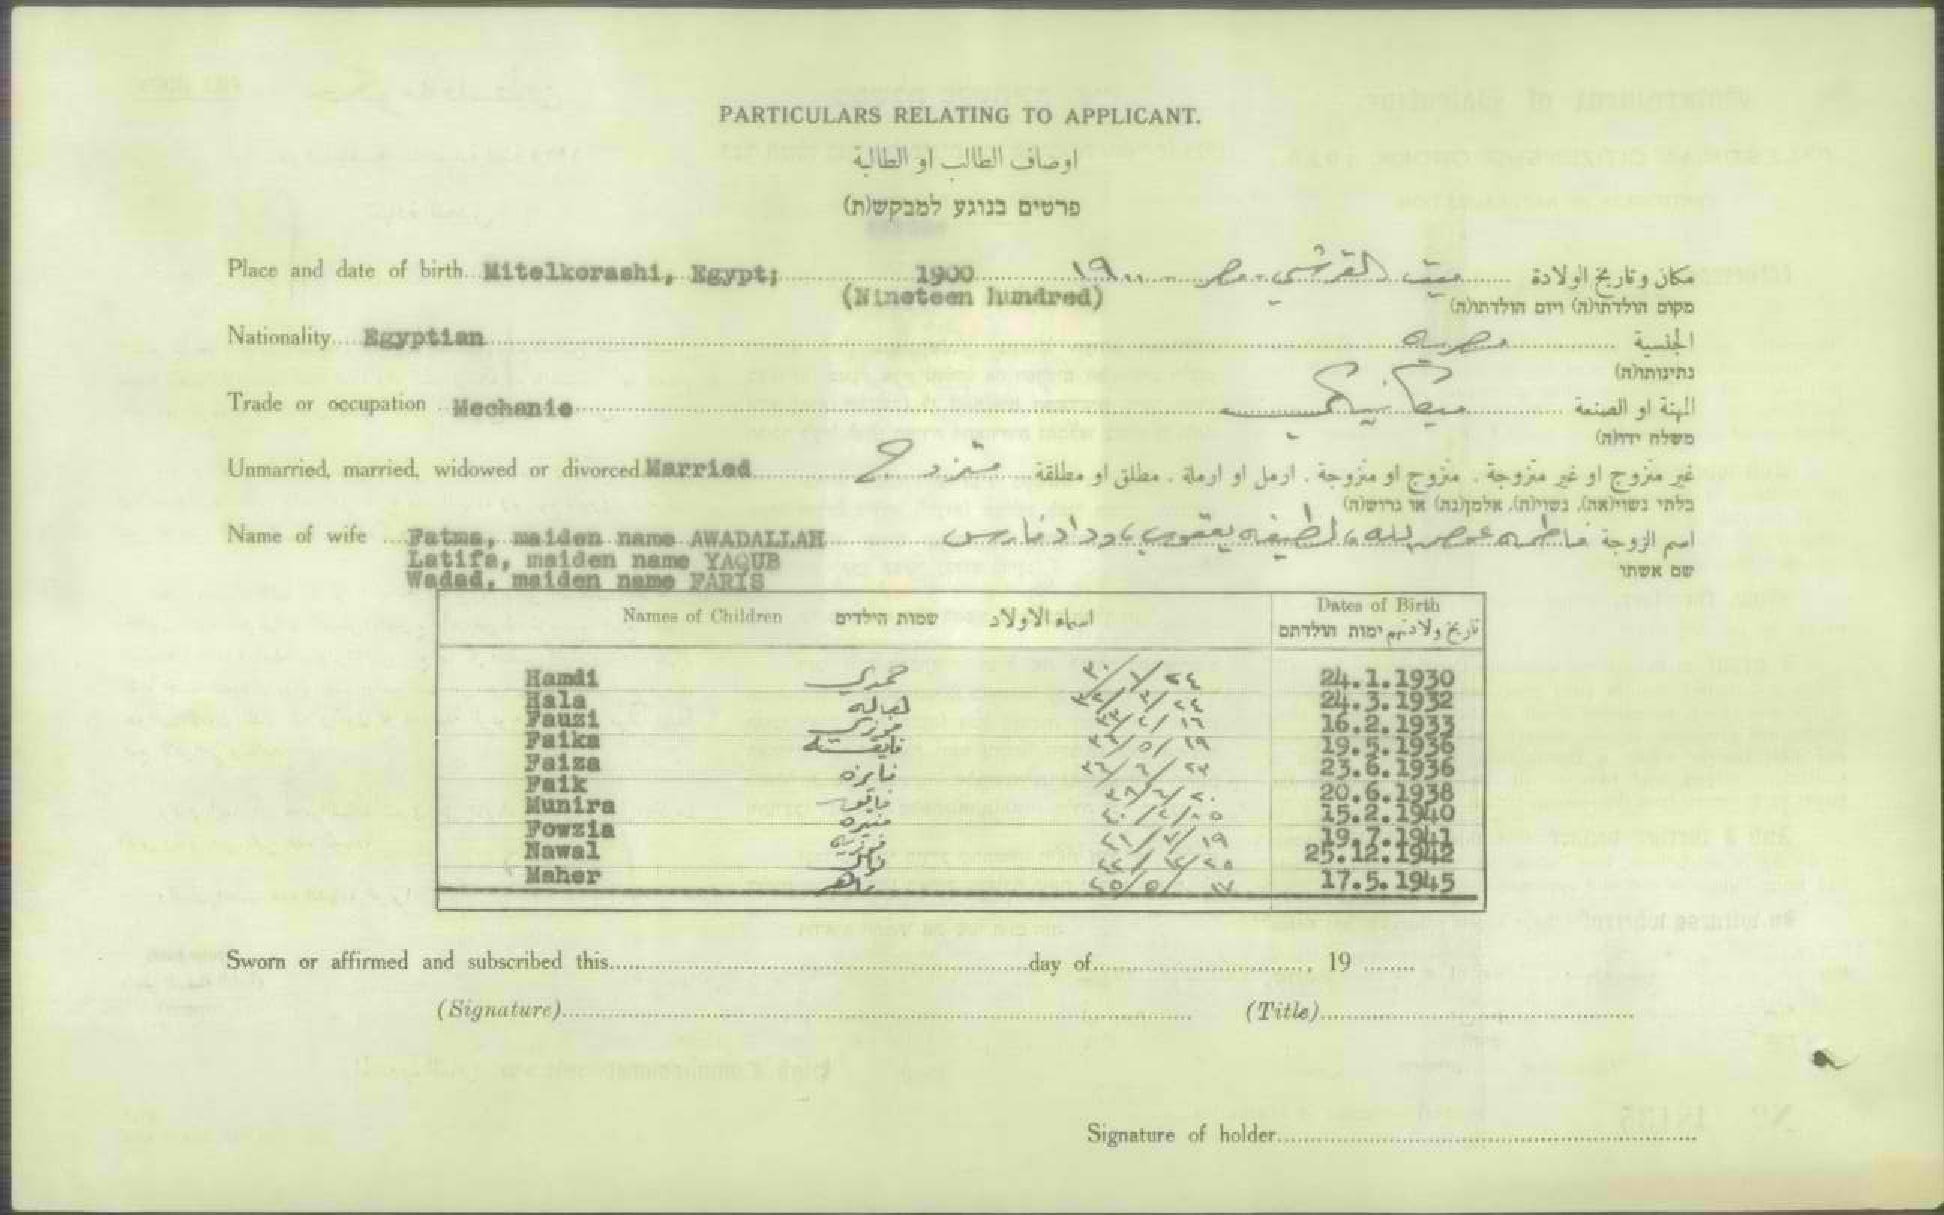 PARTICULARS RELATING TO APPLICANT.
اوصاف الطالب او الطالبة
פרטים בנוגע למבקש(ת)
Place and date of birth Mitelkorashi, Egypt; 1900 ميت القرشي - مصر - ١٩٠٠ مكان وتاريخ الولادة
(Nineteen hundred) מקום הולדתו(ה) ויום הולדתו(ה)
Nationality Egyptian مصريه الجنسية
נתינותו(ה)
Trade or occupation Mechanic ميكانيكي المهنة او الصنعة
משלח ידו(ה)
Unmarried, married, widowed or divorced Married متزوج غير متزوج او غير متزوجة . متزوج او متزوجة . ارمل او ارملة . مطلق او مطلقة
בלתי נשוי(אה), נשוי(ה), אלמן(נה) או גרוש(ה)
Name of wife Fatma, maiden name AWADALLAH فاطمه عوض الله، لطيفه يعقوب، وداد فارس اسم الزوجة
Latifa, maiden name YAQUB שם אשתו
Wadad, maiden name FARIS
Names of Children שמות הילדים اسماء الاولاد Dates of Birth
تاريخ ولادتهم ימות הולדתם
Hamdi حمدي ٢٤/١/٣٠ 24.1.1930
Hala ٢٤/٣/٣٢ 24.3.1932
Fauzi فوزي ١٦/٢/٣٣ 16.2.1933
Faika فايقة ١٩/٥/٣٦ 19.5.1936
Faiza فايزه ٢٣/٦/٣٦ 23.6.1936
Faik فايق ٢٠/٦/٣٨ 20.6.1938
Munira منيره ١٥/٢/٤٠ 15.2.1940
Fowzia فوزية ١٩/٧/٤١ 19.7.1941
Nawal نوال ٢٥/١٢/٤٢ 25.12.1942
Maher ماهر ١٧/٥/٤٥ 17.5.1945
Sworn or affirmed and subscribed this day of , 19
(Signature) (Title)
Signature of holder